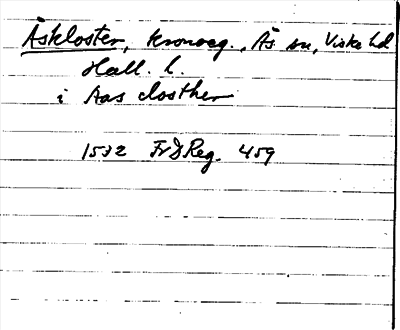 Åskloster, kronoeg., Ås sn, Viske hd
Hall. l.
i Aas closther
1532 FrDReg. 459